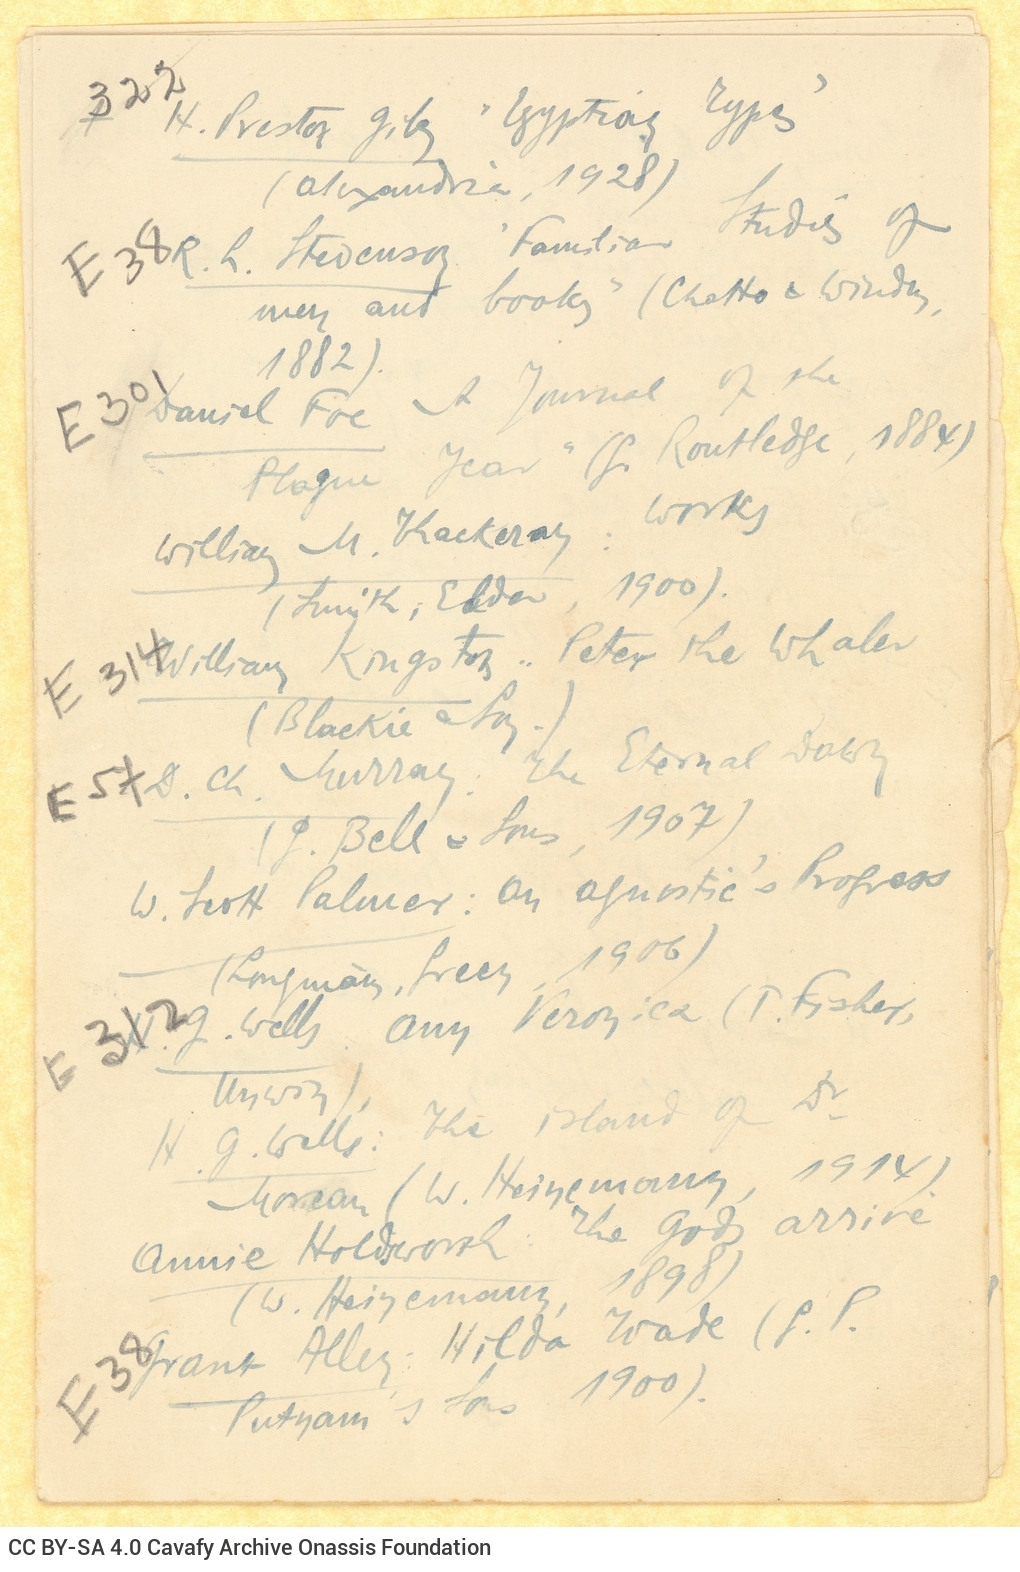 322
H. Preston Giby "Egyptian Types"
(Alexandria, 1928)
E 38 R. L. Stevenson "Familiar Studies of
men and books" (Chatto & Windus,
1882).
E 301 Daniel Foe A Journal of the
Plague Year" (G. Routledge, 1884)
William M. Thackeray: Works
(Smith, Elder, 1900).
E 314 William Kingston.. Peter the Whaler
(Blackie & Son.)
E 57 D. Ch. Murray: The Eternal Dawn
(G. Bell & Sons, 1907)
W. Scott Palmer: An agnostic's Progress
(Longmans, Green, 1906)
E 312 H. G. Wells. Ann Veronica (T. Fisher,
Unwin),
H. G. Wells: The island of Dr
Moreau (W. Heinemann, 1914)
Annie Holdsworth: The Gods arrive
(W. Heinemann, 1898)
E 38 Grant Allen: Hilda Wade (G. P.
Putnam's Sons 1900).
CC BY-SA 4.0 Cavafy Archive Onassis Foundation